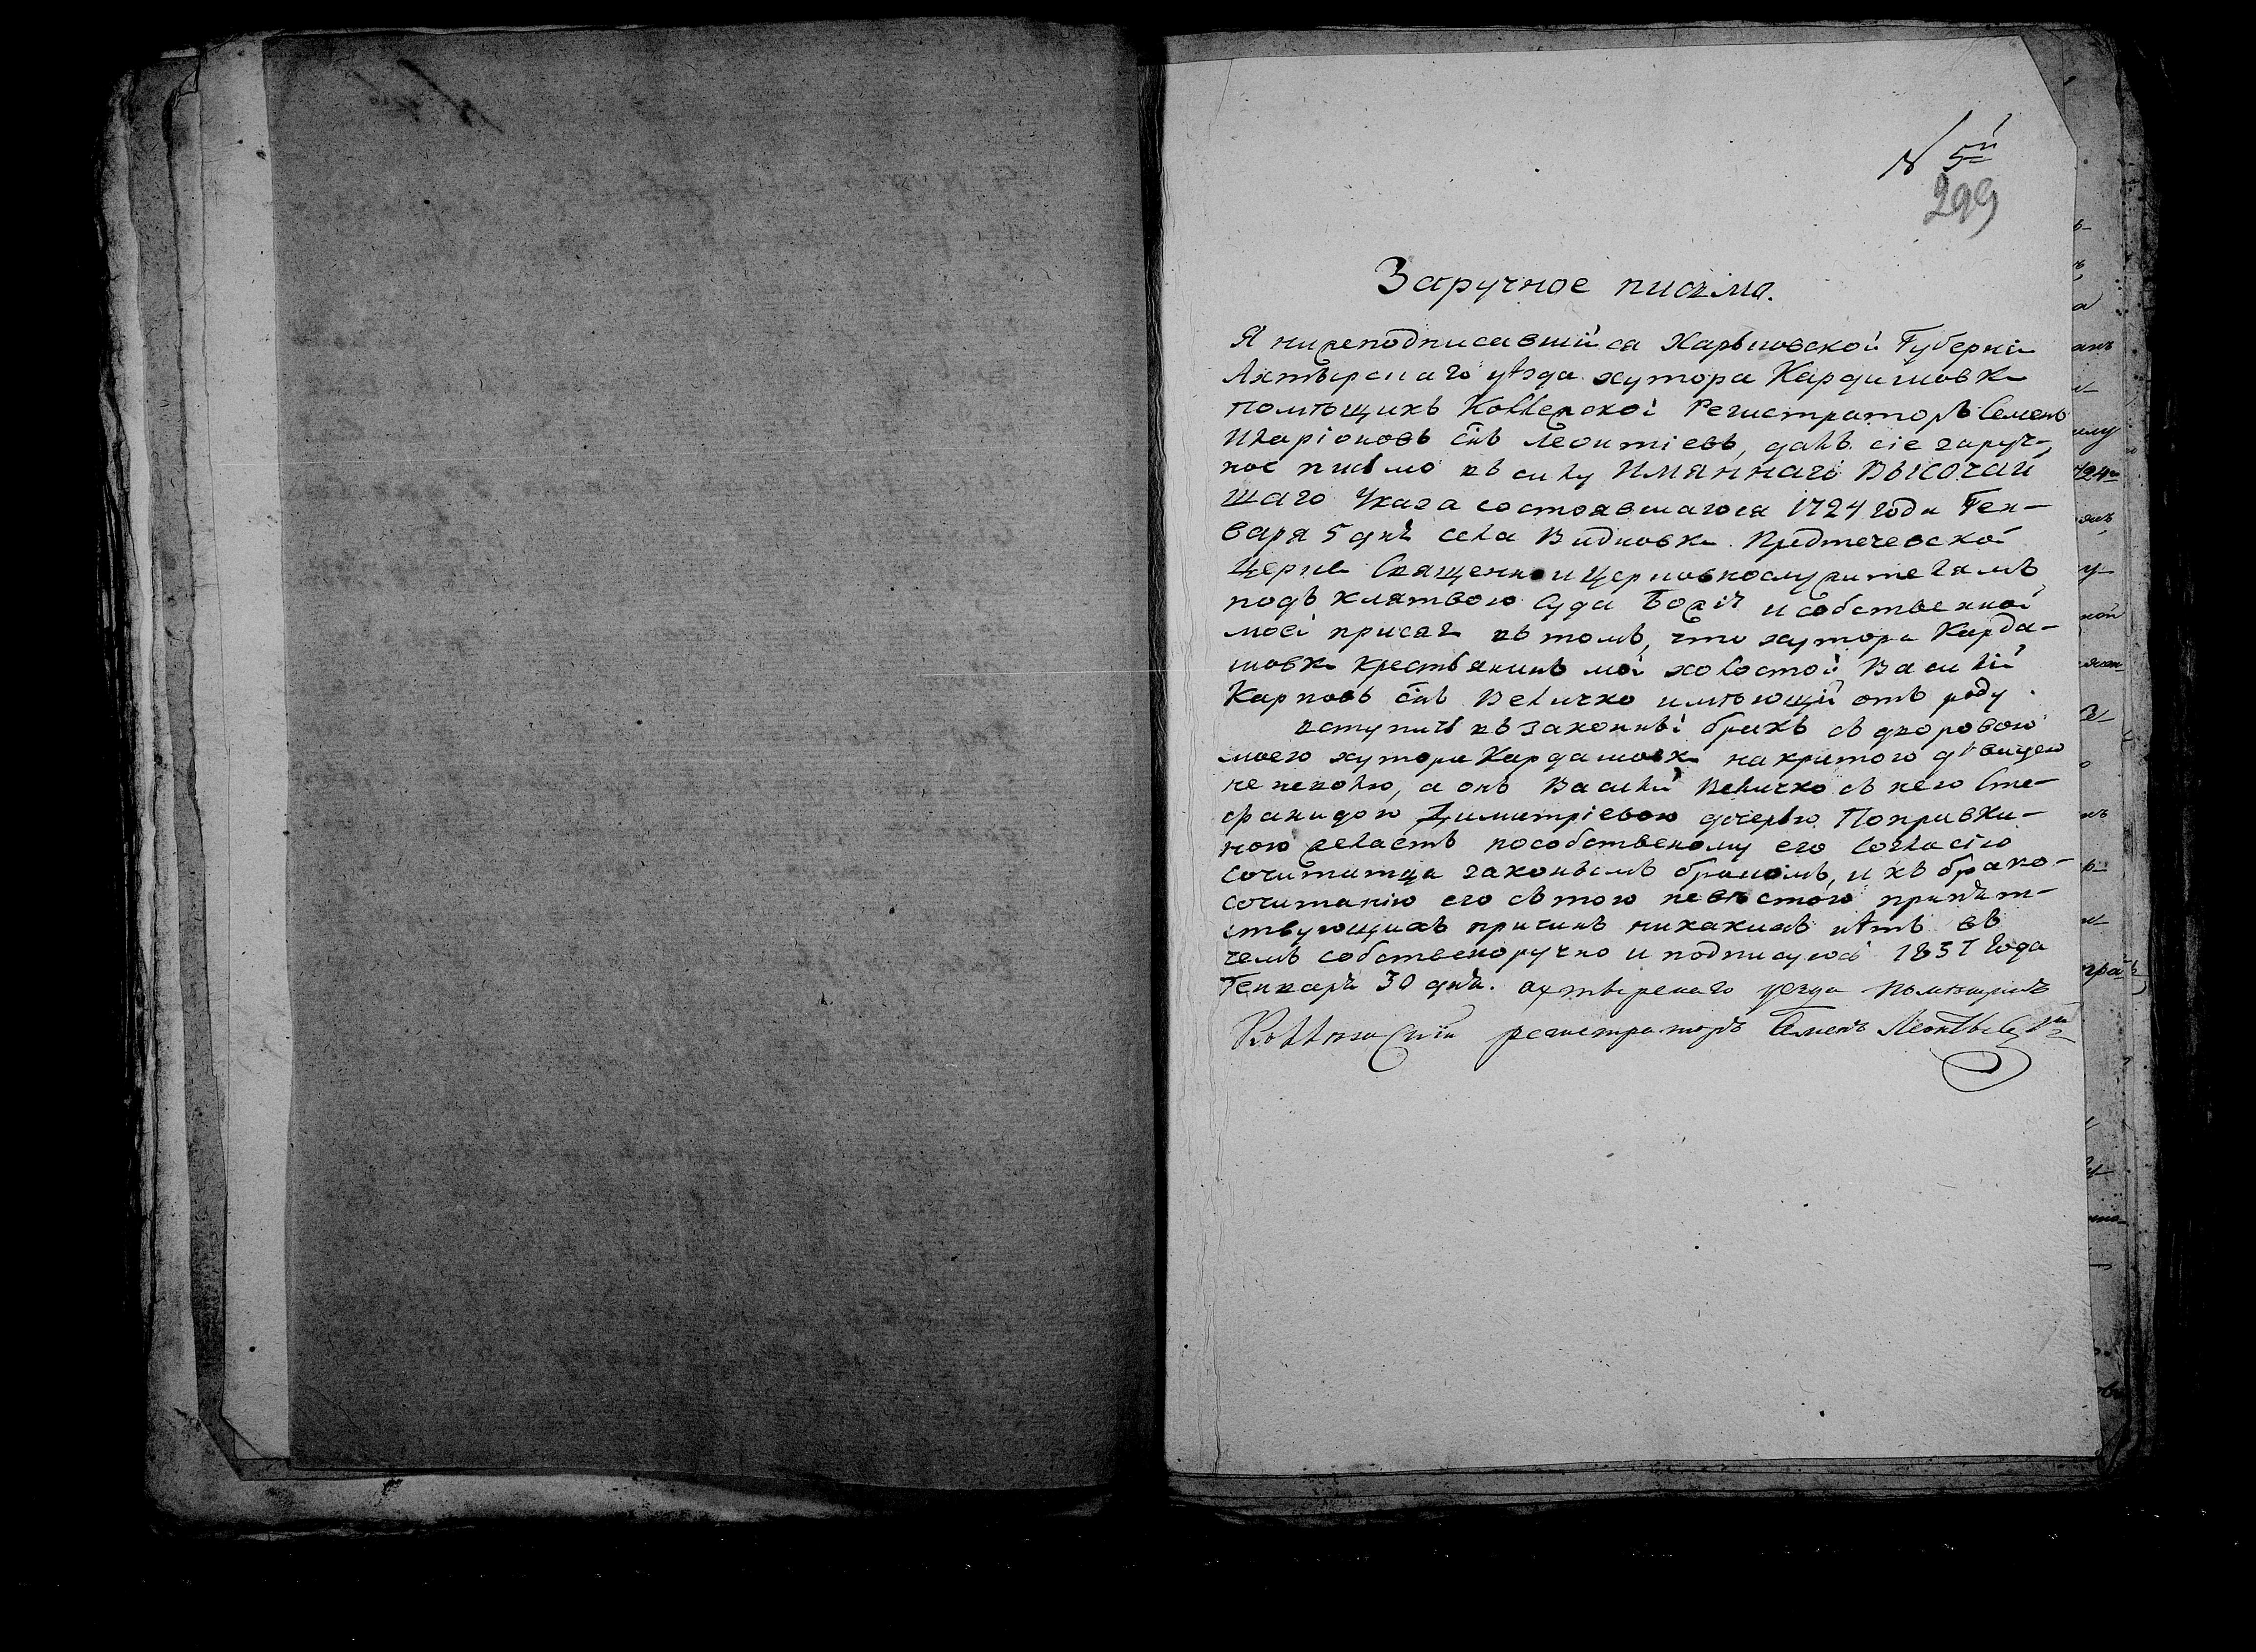 N 5й
299
Заручное письмо.
Я нижеподписавшийся Харьковской Губерніи
Ахтырскаго уѣзда хутора Кардашовки
помѣщикъ Коллежской Регистраторъ Семенъ
Иларіоновъ снъ Леонтіевъ, далъ сіе заруч-
ное письмо въ силу ИМЯННАГО ВЫСОЧАЙ
шаго Указа состоявшагося 1724 года Ген-
варя 5 дня села Видновки Предтечевской
Церкви Священно и Церковнослужителямъ
подъ клятвою Суда Божія и собственной
моей присяги въ томъ, что хутора Карда-
шовки крестьянинъ мой холостой Василій
Карповъ снъ Величко имѣющій отъ роду
вступить въ законный бракъ съ дворовою
моего хутора Кардашовки накритого дѣвицею
не неволю, а онъ Василій Величко съ нею Сте-
фанидою Димитріевою дочерью Поправки-
ною желаетъ пособственому его согласію
сочитатца законымъ бракомъ, и къ брако-
сочитанію его съ тою невѣстою припят-
ствующихъ причинъ никакихъ нѣтъ въ
чемъ собственоручно и подписуюсь 1831 года
Генваря 30 дня. ахтырскаго уезда помѣщикъ
регистраторъ Семенъ